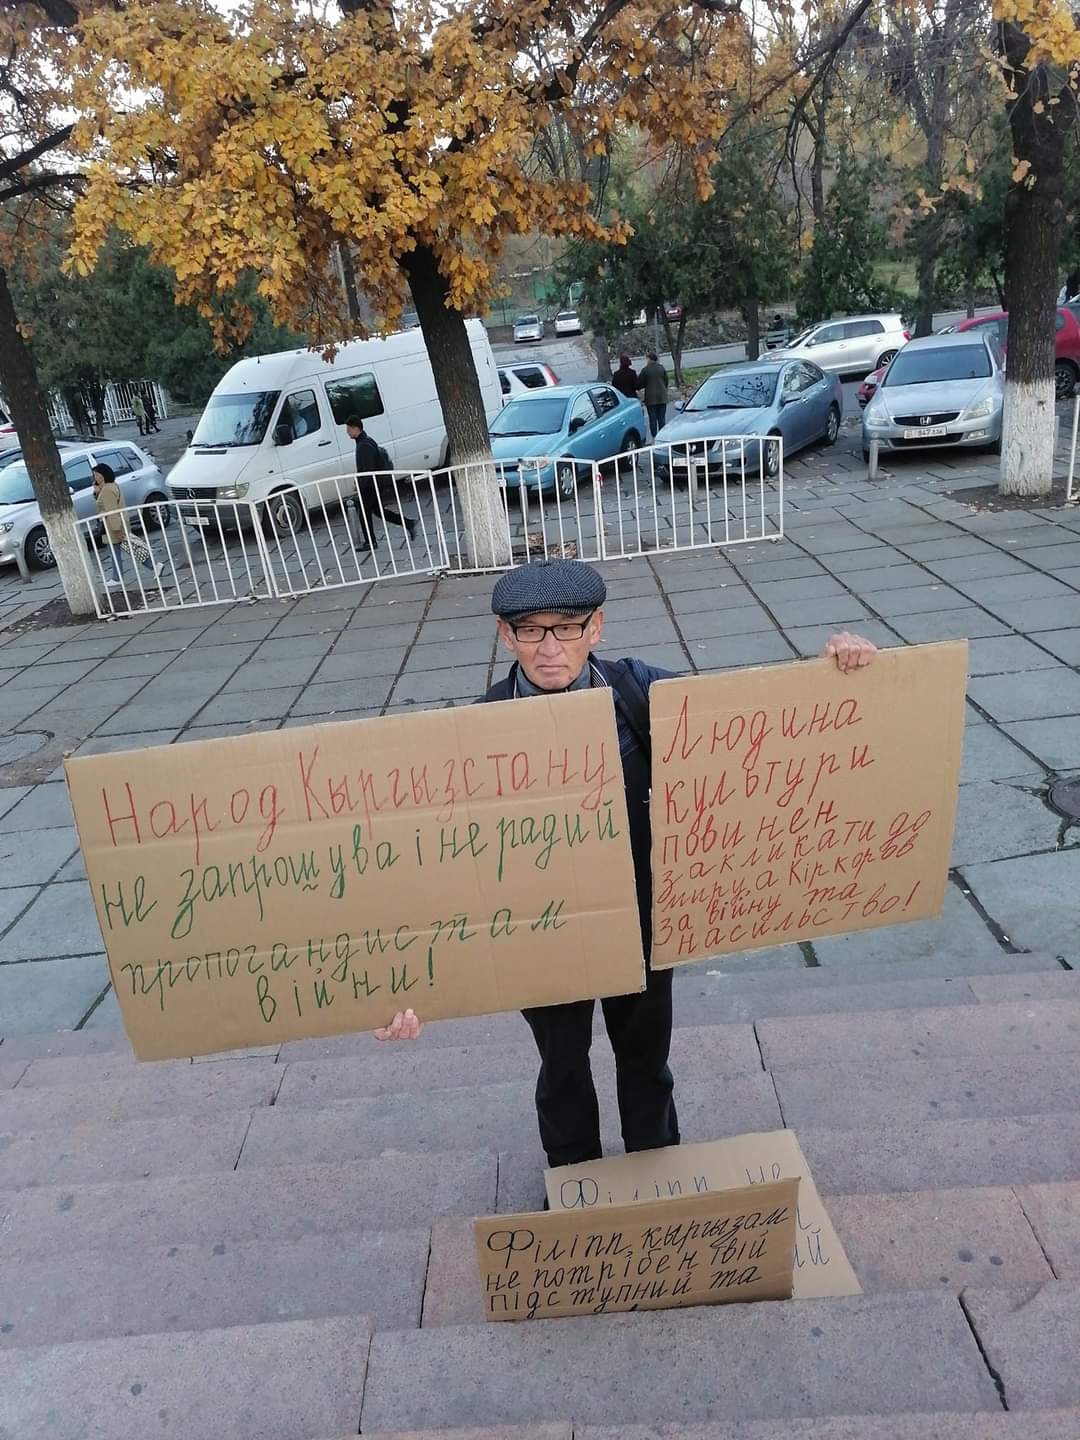 Народ Кыргызстану
не запрошува і не радий
пропогандистам
війни!
Людина
культури
повинен
закликати до
миру, а Кіркоров
за війну та
насильство!
Філіпп не
Філіпп, кыргызам
не потрібен твій
підступний та